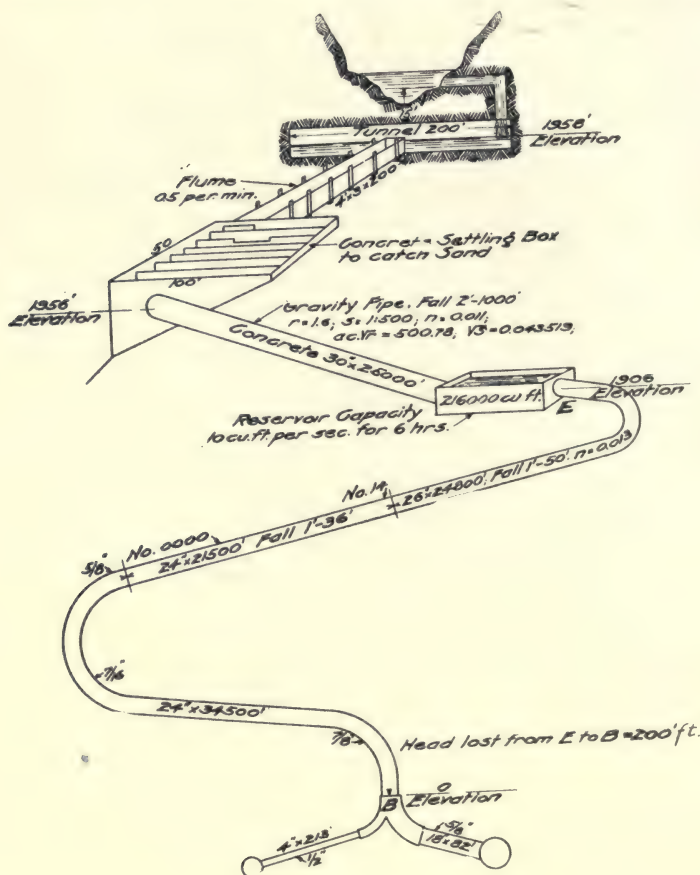 5'
Tunnel 200'
1958'
Elevation
Flume
0.5 per min.
4'×3'×200'
50'
100'
Concrete Settling Box
to catch Sand
1956'
Elevation
Gravity Pipe. Fall 2'-1000'
r=1.6; S=1:500; n=0.011;
ac.√r=500.78, √S=0.043519;
Concrete 30"×26000'
216000 cu ft.
1906
Elevation
E
Reservoir Capacity
10 cu.ft. per sec. for 6 hrs.
No. 14
26"×24800' Fall 1'-50' n=0.013
No. 0000
24"×21500' Fall 1'-36'
5/8"
7/16"
24"×34500'
7/8"
Head lost from E to B=200' ft.
0
B Elevation
4"×213'
1/2"
5/8"
18"×82'